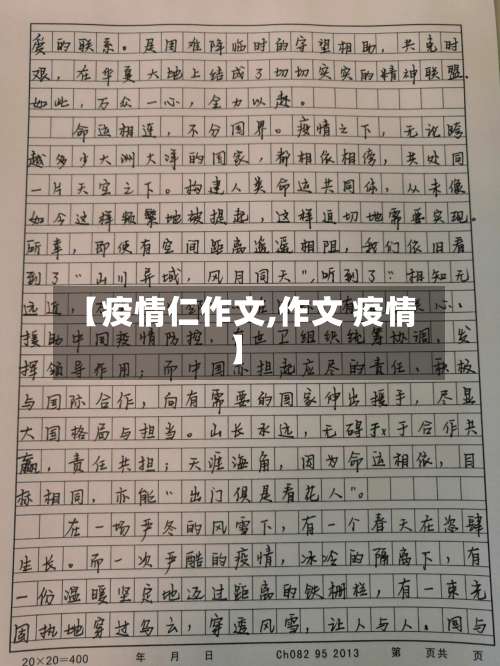 爱的联系。是困难降临时的守望相助，共克时
艰，在华夏大地上结成了切切实实的精神联盟。
如此，万众一心，全力以赴。
命运相连，不分国界。疫情之下，无论跨
越多少大洲大洋的国家，都相依相傍，共处同
一片天空之下。构建人类命运共同体，从未像
如今这样频繁地被提起，这样迫切地需要实现。
所幸，即使有空间距离遥遥相阻，我们依旧看
到了“山川异域，风月同天”，听到了“相知无
远近，
【疫情仁作文,作文 疫情
】
援助中国疫情防控，在世卫组织统筹协调，发
挥领导作用；而中国亦担起应尽的责任，积极
与国际合作，向有需要的国家伸出援手，尽显
大国格局与担当。山长水远，无碍于于合作共
赢，责任共担；天涯海角，因为命运相依，目
标相同，亦能“出门俱是看花人”。
在一场严冬的风雪下，有一个春天在恣肆
生长。而一次严酷的疫情，冰冷的隔离下，有
一份温暖坚定地迈过距离的铁栅栏，有一束光
固执地穿过乌云，穿透风雪，让人与人。国与
20×20=400 年 月 日 Ch082 95 2013 第 页共 页